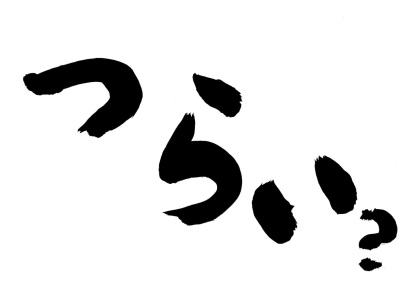 つらい?